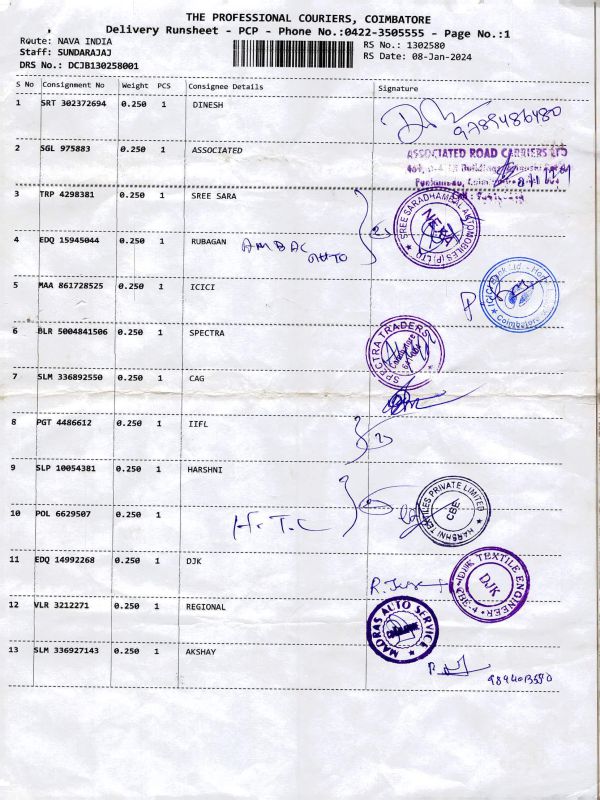 THE PROFESSIONAL COURIERS, COIMBATORE
Delivery Runsheet - PCP - Phone No.:0422-3505555 - Page No.:1
Route: NAVA INDIA
Staff: SUNDARAJAJ
DRS No.: DCJB130258001
RS No.: 1302580
RS Date: 08-Jan-2024
S No Consignment No Weight PCS Consignee Details Signature
1 SRT 302372694 0.250 1 DINESH
9789486480
2 SGL 975883 0.250 1 ASSOCIATED
ASSOCIATED ROAD CARRIERS LTD
3 TRP 4298381 0.250 1 SREE SARA
SREE SARADHAMBAL AUTOMOBILES (P) LTD
4 EDQ 15945044 0.250 1 RUBAGAN AMBAL AUTO
5 MAA 861728525 0.250 1 ICICI
ICICI Bank Ltd. Coimbatore
6 BLR 5004841506 0.250 1 SPECTRA
SPECTRA TRADERS
7 SLM 336892550 0.250 1 CAG
8 PGT 4486612 0.250 1 IIFL
9 SLP 10054381 0.250 1 HARSHNI
HARSHNI TEXTILES PRIVATE LIMITED CBE
10 POL 6629507 0.250 1 H.T.C
11 EDQ 14992268 0.250 1 DJK
DJK TEXTILE ENGINEER CBE-4 DJK
12 VLR 3212271 0.250 1 REGIONAL
MADRAS AUTO SERVICE
13 SLM 336927143 0.250 1 AKSHAY
9894013590